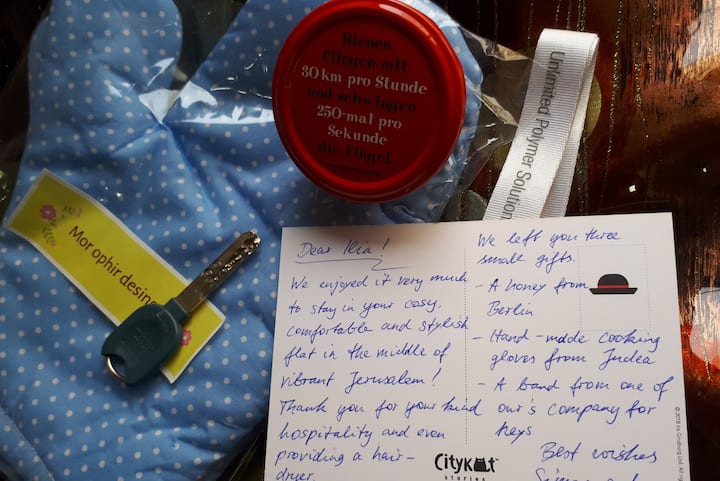 Bienen
fliegen mit
30 km pro Stunde
und schwingen
250-mal pro
Sekunde
die Flügel.
Unlimited Polymer Solution
Mor ophir desing
Dear Ilia!
We enjoyed it very much
to stay in your cosy,
comfortable and stylish
flat in the middle of
vibrant Jerusalem!
Thank you for your kind
hospitality and even
providing a hair-
dryer.
We left you three
small gifts.
- A honey from
Berlin
- Hand-made cooking
gloves from Judea
- A band from one of
our's company for
keys
Best wishes
CityKat
stories